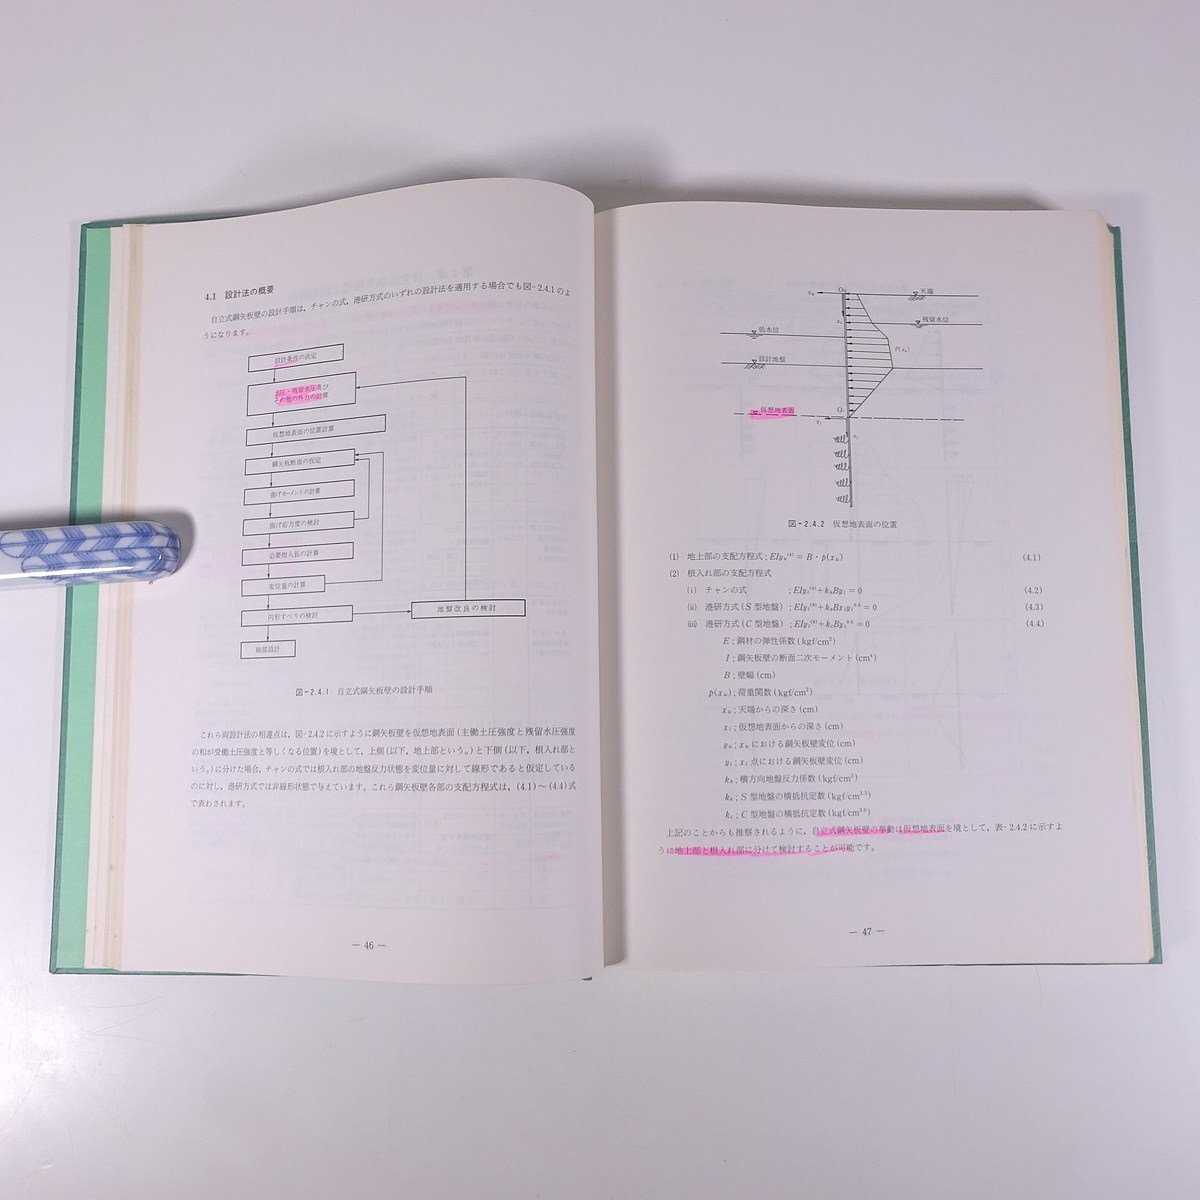 4.1 設計法の概要
自立式鋼矢板壁の設計手順は，チャンの式，港研方式のいずれの設計法を適用する場合でも図-2.4.1のよ
うになります。
設計条件の決定
土圧・残留水圧及び
その他の外力の計算
仮想地表面の位置計算
鋼矢板断面の仮定
曲げモーメントの計算
曲げ応力度の検討
必要根入長の計算
変位量の計算
円形すべりの検討
地盤改良の検討
細部設計
図-2.4.1 自立式鋼矢板壁の設計手順
これら両設計法の相違点は，図-2.4.2に示すように鋼矢板壁を仮想地表面(主働土圧強度と残留水圧強度
の和が受働土圧強度と等しくなる位置)を境として，上側(以下，地上部という。)と下側(以下，根入れ部と
いう。)に分けた場合，チャンの式では根入れ部の地盤反力状態を変位量に対して線形であると仮定している
のに対し，港研方式では非線形状態で与えています。これら鋼矢板壁各部の支配方程式は，(4.1)～(4.4)式
で表わされます。
— 46 —
yu Ou 天端
xu
残留水位
低水位
P(xu)
設計地盤
仮想地表面 Ol
yl xl
図-2.4.2 仮想地表面の位置
(1) 地上部の支配方程式；EIyu⁽⁴⁾＝B・p(xu) (4.1)
(2) 根入れ部の支配方程式
(i) チャンの式 ；EIyl⁽⁴⁾＋khByl＝0 (4.2)
(ii) 港研方式(S型地盤)；EIyl⁽⁴⁾＋ksBxlyl⁰·⁵＝0 (4.3)
(iii) 港研方式(C型地盤)；EIyl⁽⁴⁾＋kcByl⁰·⁵＝0 (4.4)
E；鋼材の弾性係数(kgf/cm²)
I；鋼矢板壁の断面二次モーメント(cm⁴)
B；壁幅(cm)
p(xu)；荷重関数(kgf/cm²)
xu；天端からの深さ(cm)
xl；仮想地表面からの深さ(cm)
yu；xuにおける鋼矢板壁変位(cm)
yl；xl点における鋼矢板壁変位(cm)
kh；横方向地盤反力係数(kgf/cm³)
ks；S型地盤の横抵抗定数(kgf/cm³·⁵)
kc；C型地盤の横抵抗定数(kgf/cm²·⁵)
上記のことからも推察されるように，自立式鋼矢板壁の挙動は仮想地表面を境として，表-2.4.2に示すよ
うに地上部と根入れ部に分けて検討することが可能です。
— 47 —